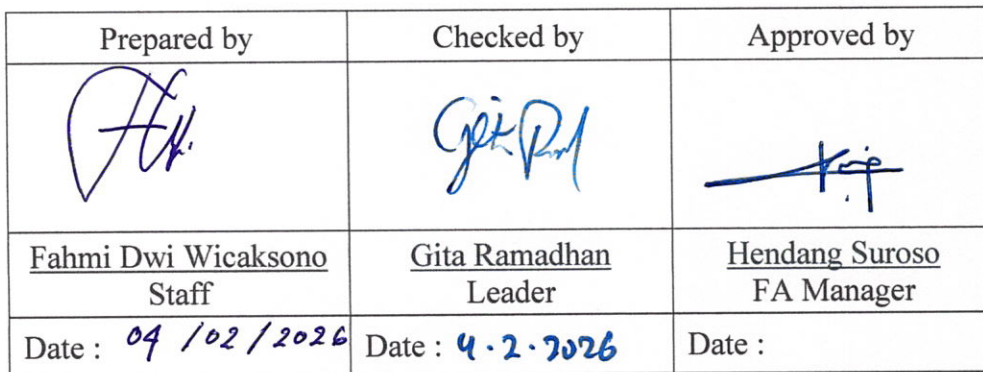 Prepared by Checked by Approved by
Fahmi Dwi Wicaksono Gita Ramadhan Hendang Suroso
Staff Leader FA Manager
Date : 04 /02 /2026 Date : 4.2.2026 Date :